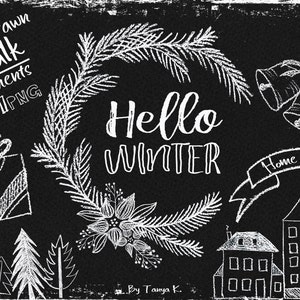 awn
lk
ments
PNG
Hello
WINTER
Home
By Tanya K.